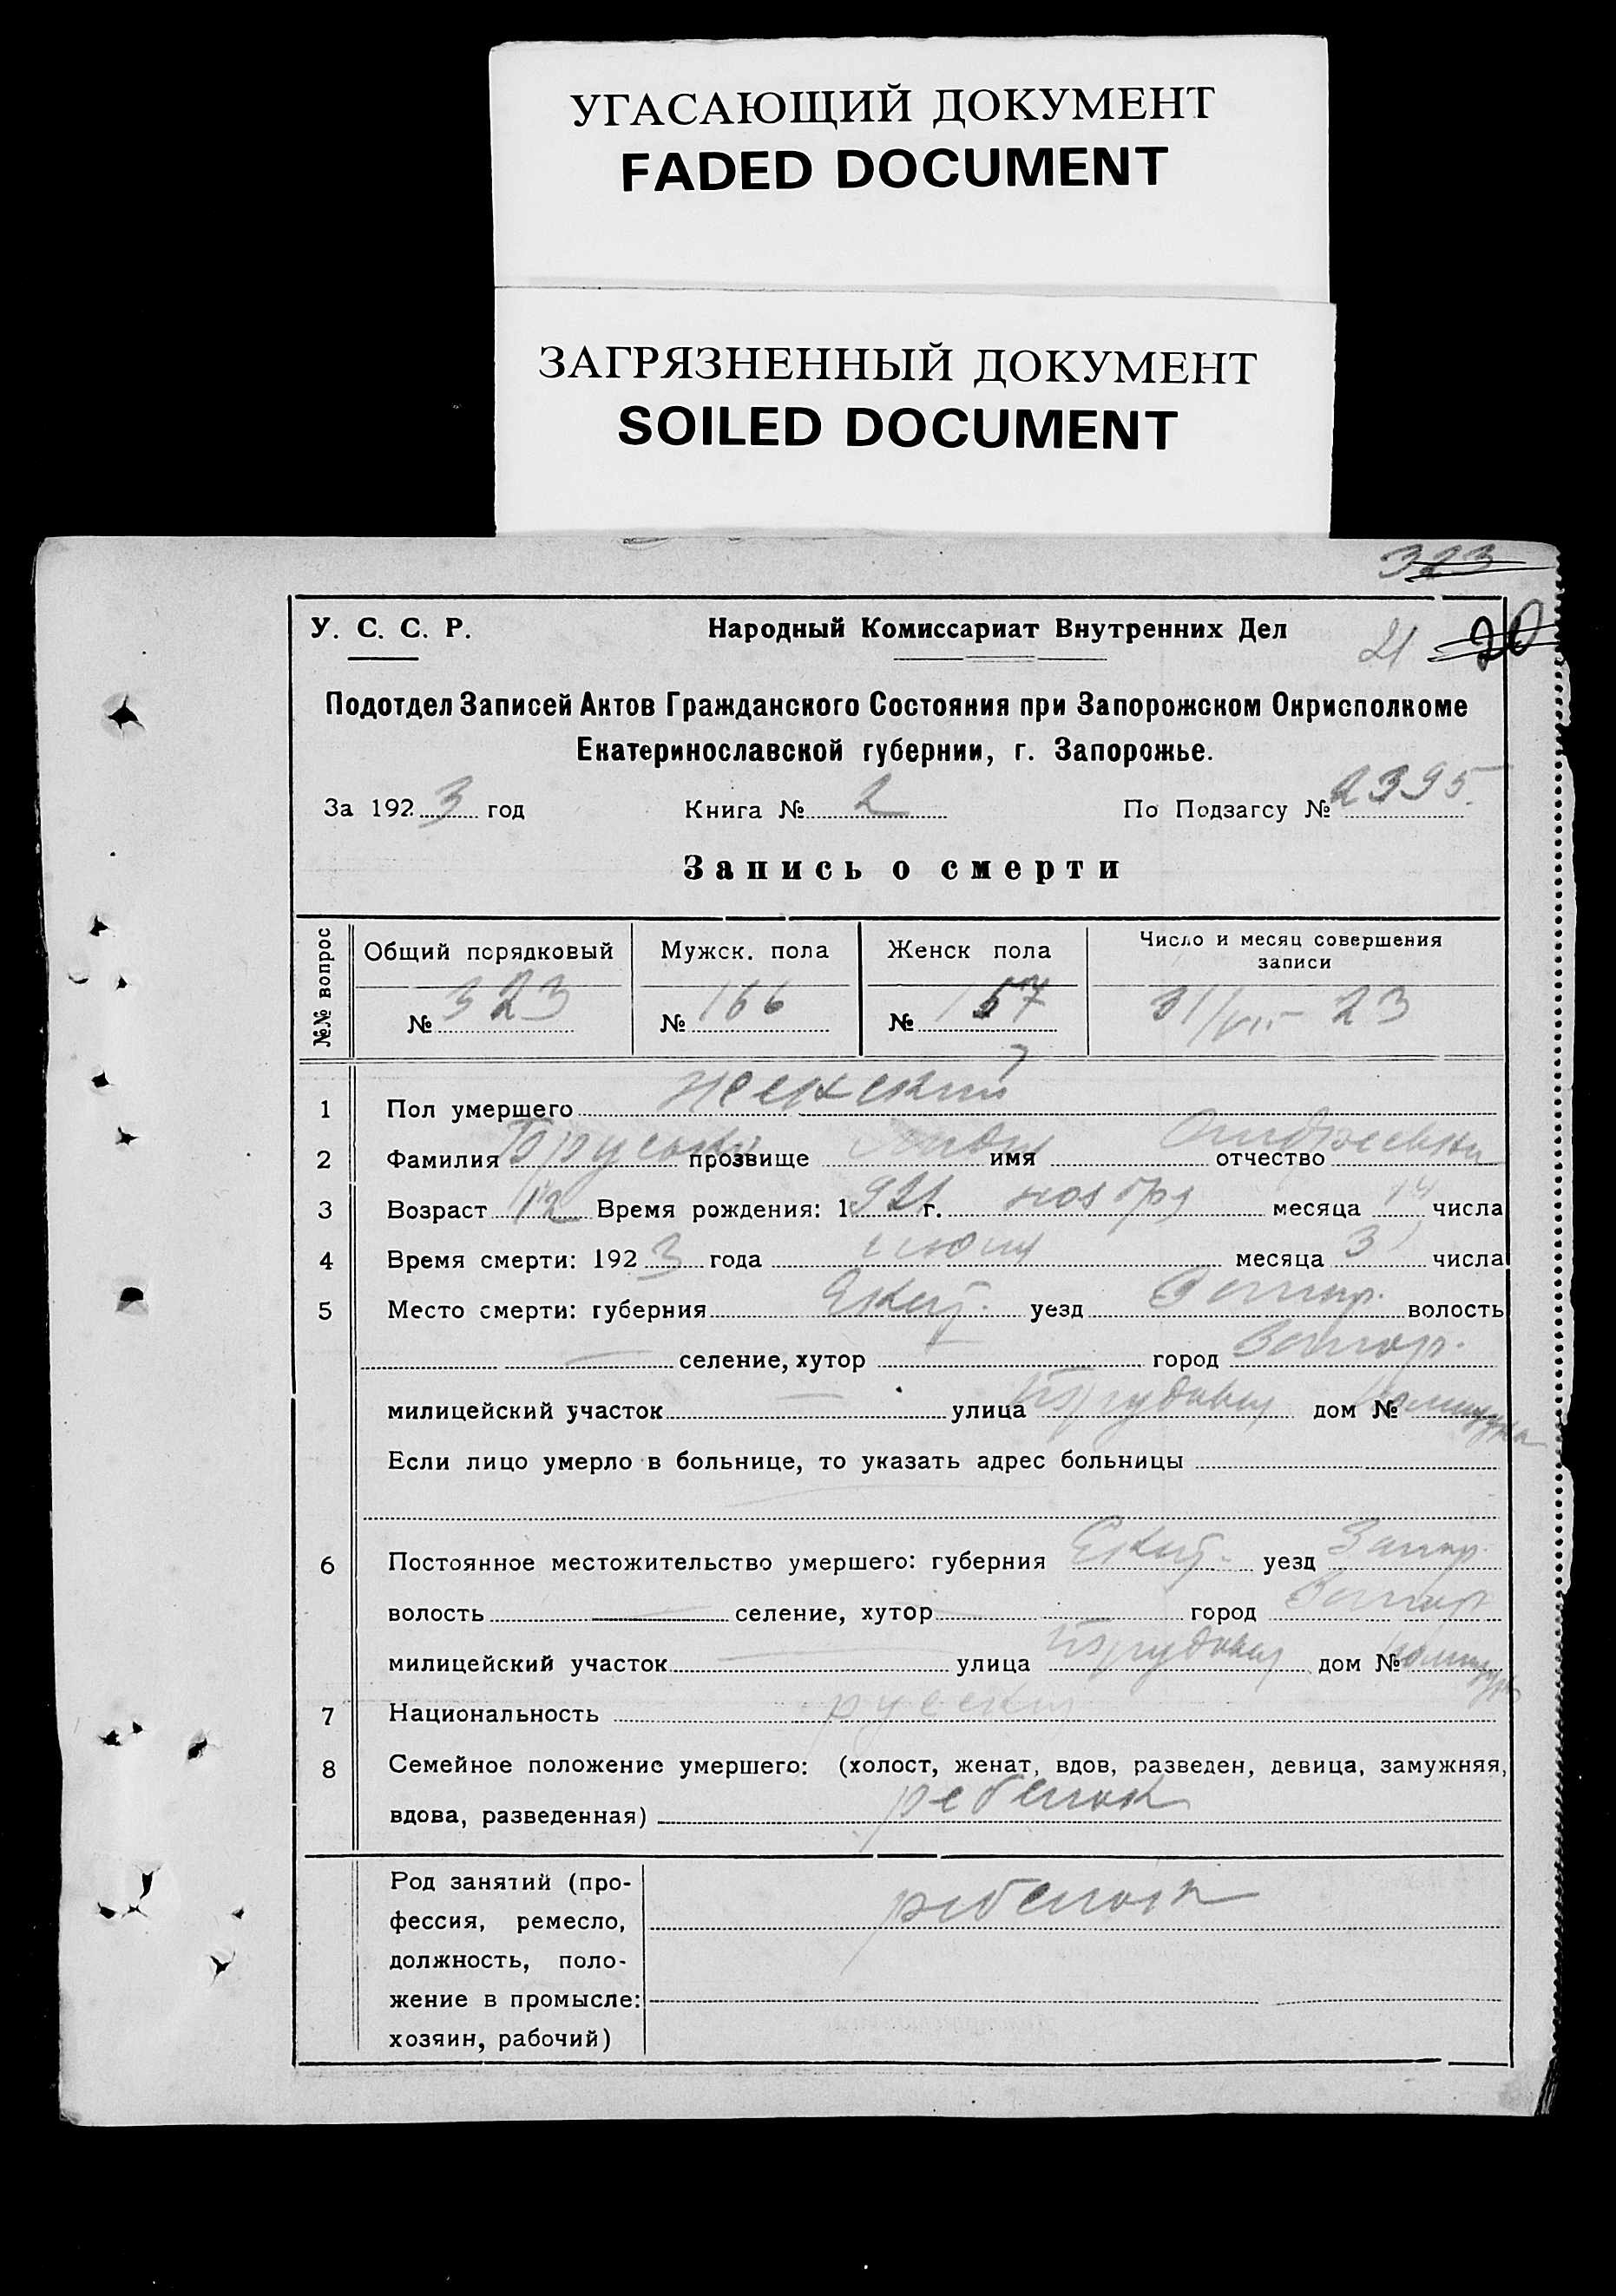 УГАСАЮЩИЙ ДОКУМЕНТ
FADED DOCUMENT
ЗАГРЯЗНЕННЫЙ ДОКУМЕНТ
SOILED DOCUMENT
323
У. С. С. Р. Народный Комиссариат Внутренних Дел 21 20
Подотдел Записей Актов Гражданского Состояния при Запорожском Окрисполкоме
Екатеринославской губернии, г. Запорожье.
За 1923 год Книга № 2 По Подзагсу № 2395.
Запись о смерти
№№ вопрос Общий порядковый Мужск. пола Женск пола Число и месяц совершения записи
№ 323 № 166 № 157 31/VII 23
1 Пол умершего женский
2 Фамилия прозвище имя отчество Андреевна
3 Возраст Время рождения: 1921 г. ноября месяца 14 числа
4 Время смерти: 1923 года июля месяца 31 числа
5 Место смерти: губерния Екат. уезд Запор. волость
селение, хутор город Запор.
милицейский участок улица дом №
Если лицо умерло в больнице, то указать адрес больницы
6 Постоянное местожительство умершего: губерния Екат. уезд Запор.
волость селение, хутор город Запор
милицейский участок улица дом №
7 Национальность русская
8 Семейное положение умершего: (холост, женат, вдов, разведен, девица, замужняя,
вдова, разведенная) ребенок
Род занятий (про-
фессия, ремесло, ребенок
должность, поло-
жение в промысле:
хозяин, рабочий)